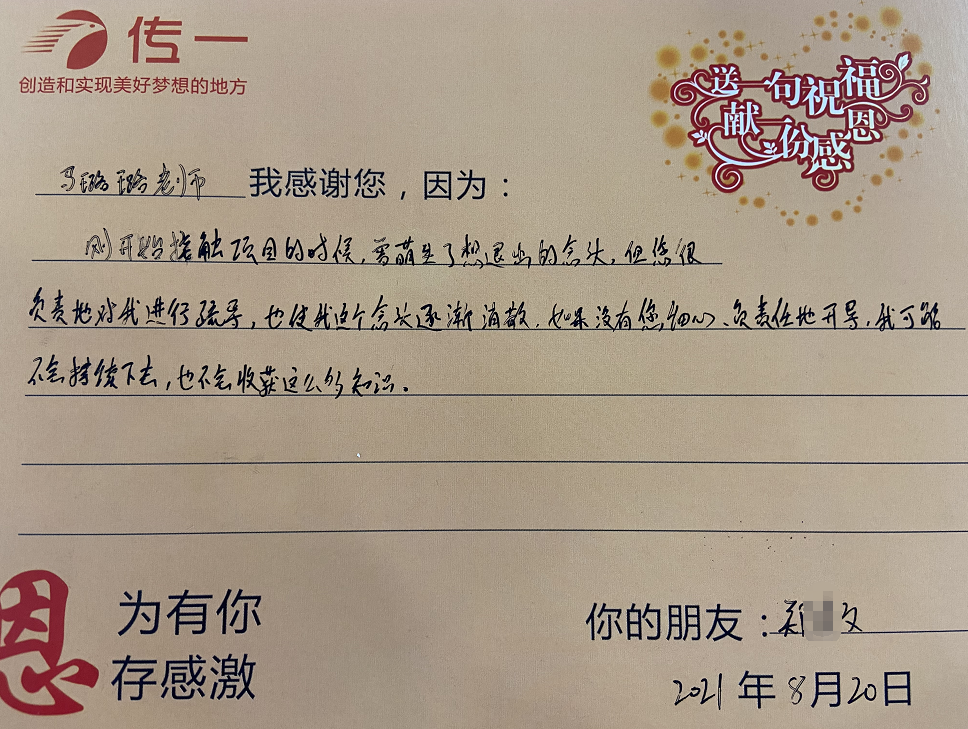 传一
创造和实现美好梦想的地方
送一句祝福
献一份感恩
马璐璐老师 我感谢您，因为：
刚开始接触项目的时候，曾萌生了想退出的念头，但您很
负责地对我进行疏导，也使我这个念头逐渐消散，如果没有您细心、负责任地开导，我可能
不会持续下去，也不会收获这么多知识。
恩
为有你
存感激
你的朋友：郑 文
2021年8月20日